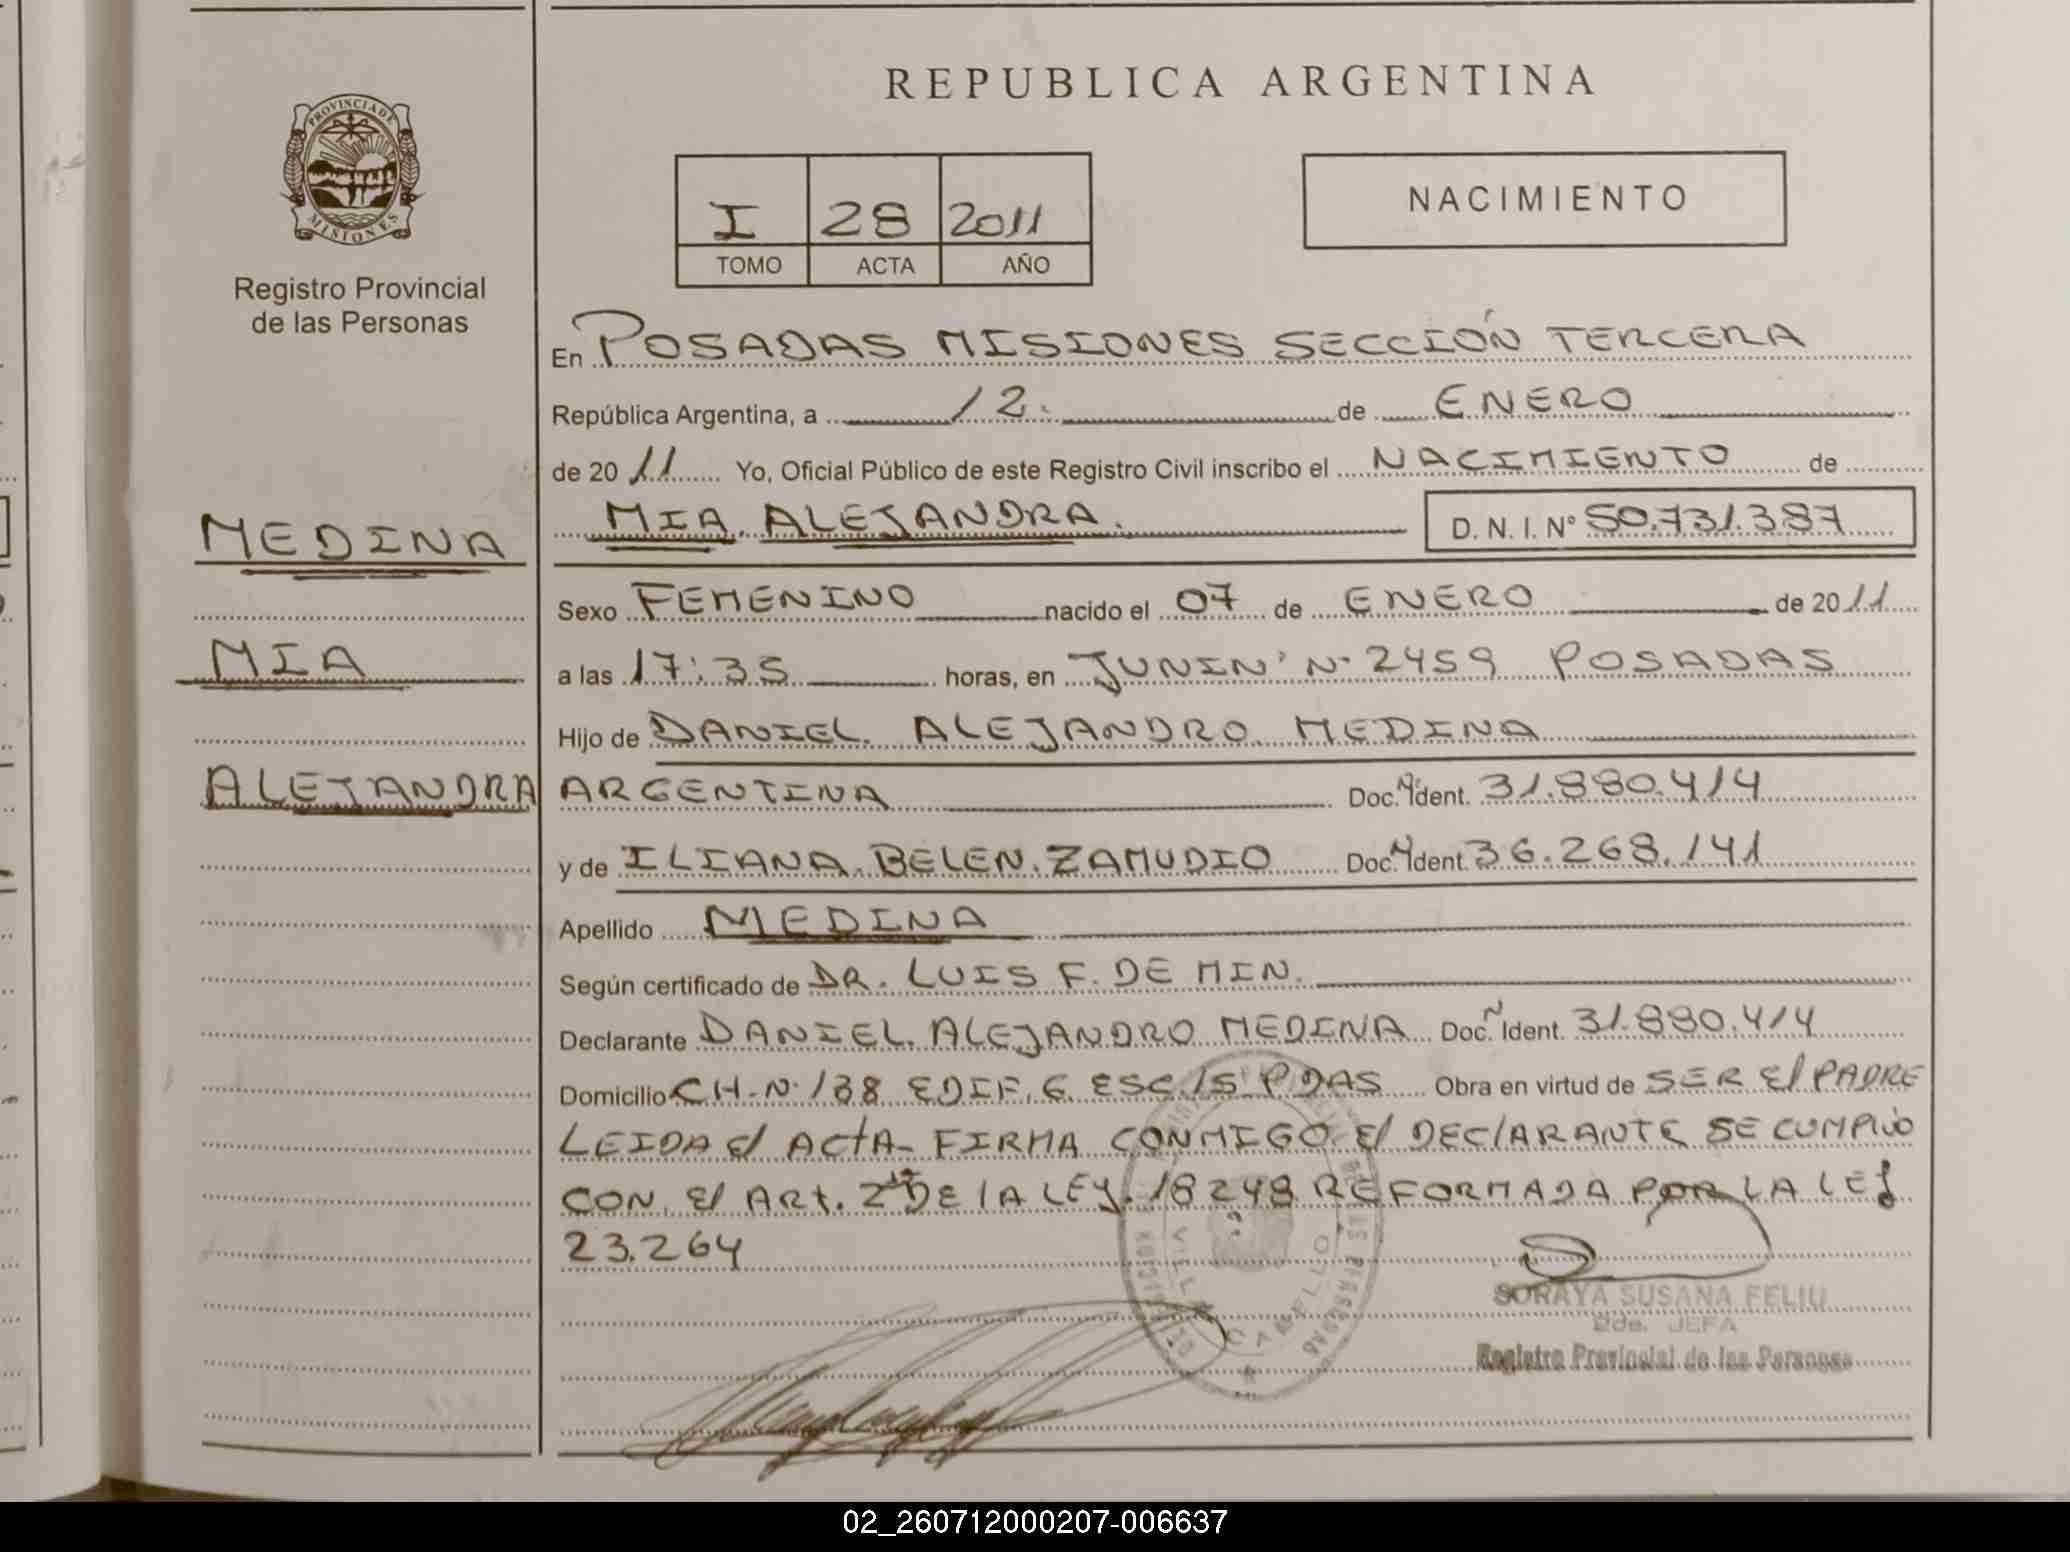 REPUBLICA ARGENTINA
PROVINCIA DE
MISIONES
Registro Provincial
de las Personas
I 28 2011
TOMO ACTA AÑO
NACIMIENTO
En POSADAS MISIONES SECCIÓN TERCERA
República Argentina, a 12. de ENERO
de 2011 Yo, Oficial Público de este Registro Civil inscribo el NACIMIENTO de
MIA. ALEJANDRA. D. N. I. N° 50.731.387
MEDINA
Sexo FEMENINO nacido el 07 de ENERO de 2011
MIA
a las 17:35 horas, en JUNIN N° 2459 POSADAS
Hijo de DANIEL. ALEJANDRO MEDINA
ALEJANDRA
ARGENTINA Doc. N Ident. 31.880.414
y de ILIANA. BELEN. ZAMUDIO Doc. N Ident. 36.268.141
Apellido MEDINA
Según certificado de DR. LUIS F. DE MIN.
Declarante DANIEL. ALEJANDRO MEDINA Doc. N Ident. 31.880.414
Domicilio CH. N° 138 EDIF. 6 ESC. 15 PDAS Obra en virtud de SER El PADRE
LEIDA El ACtA- FIRMA CONMIGO El DEClARANTE SE CUMPlIO
CON El ARt. 2° DE lA LEy. 18248 REFORMADA POR LA LEY
23.264
VILLA CABELLO
SORAYA SUSANA FELIU
2da. JEFA
Registro Provincial de las Personas
02_260712000207-006637